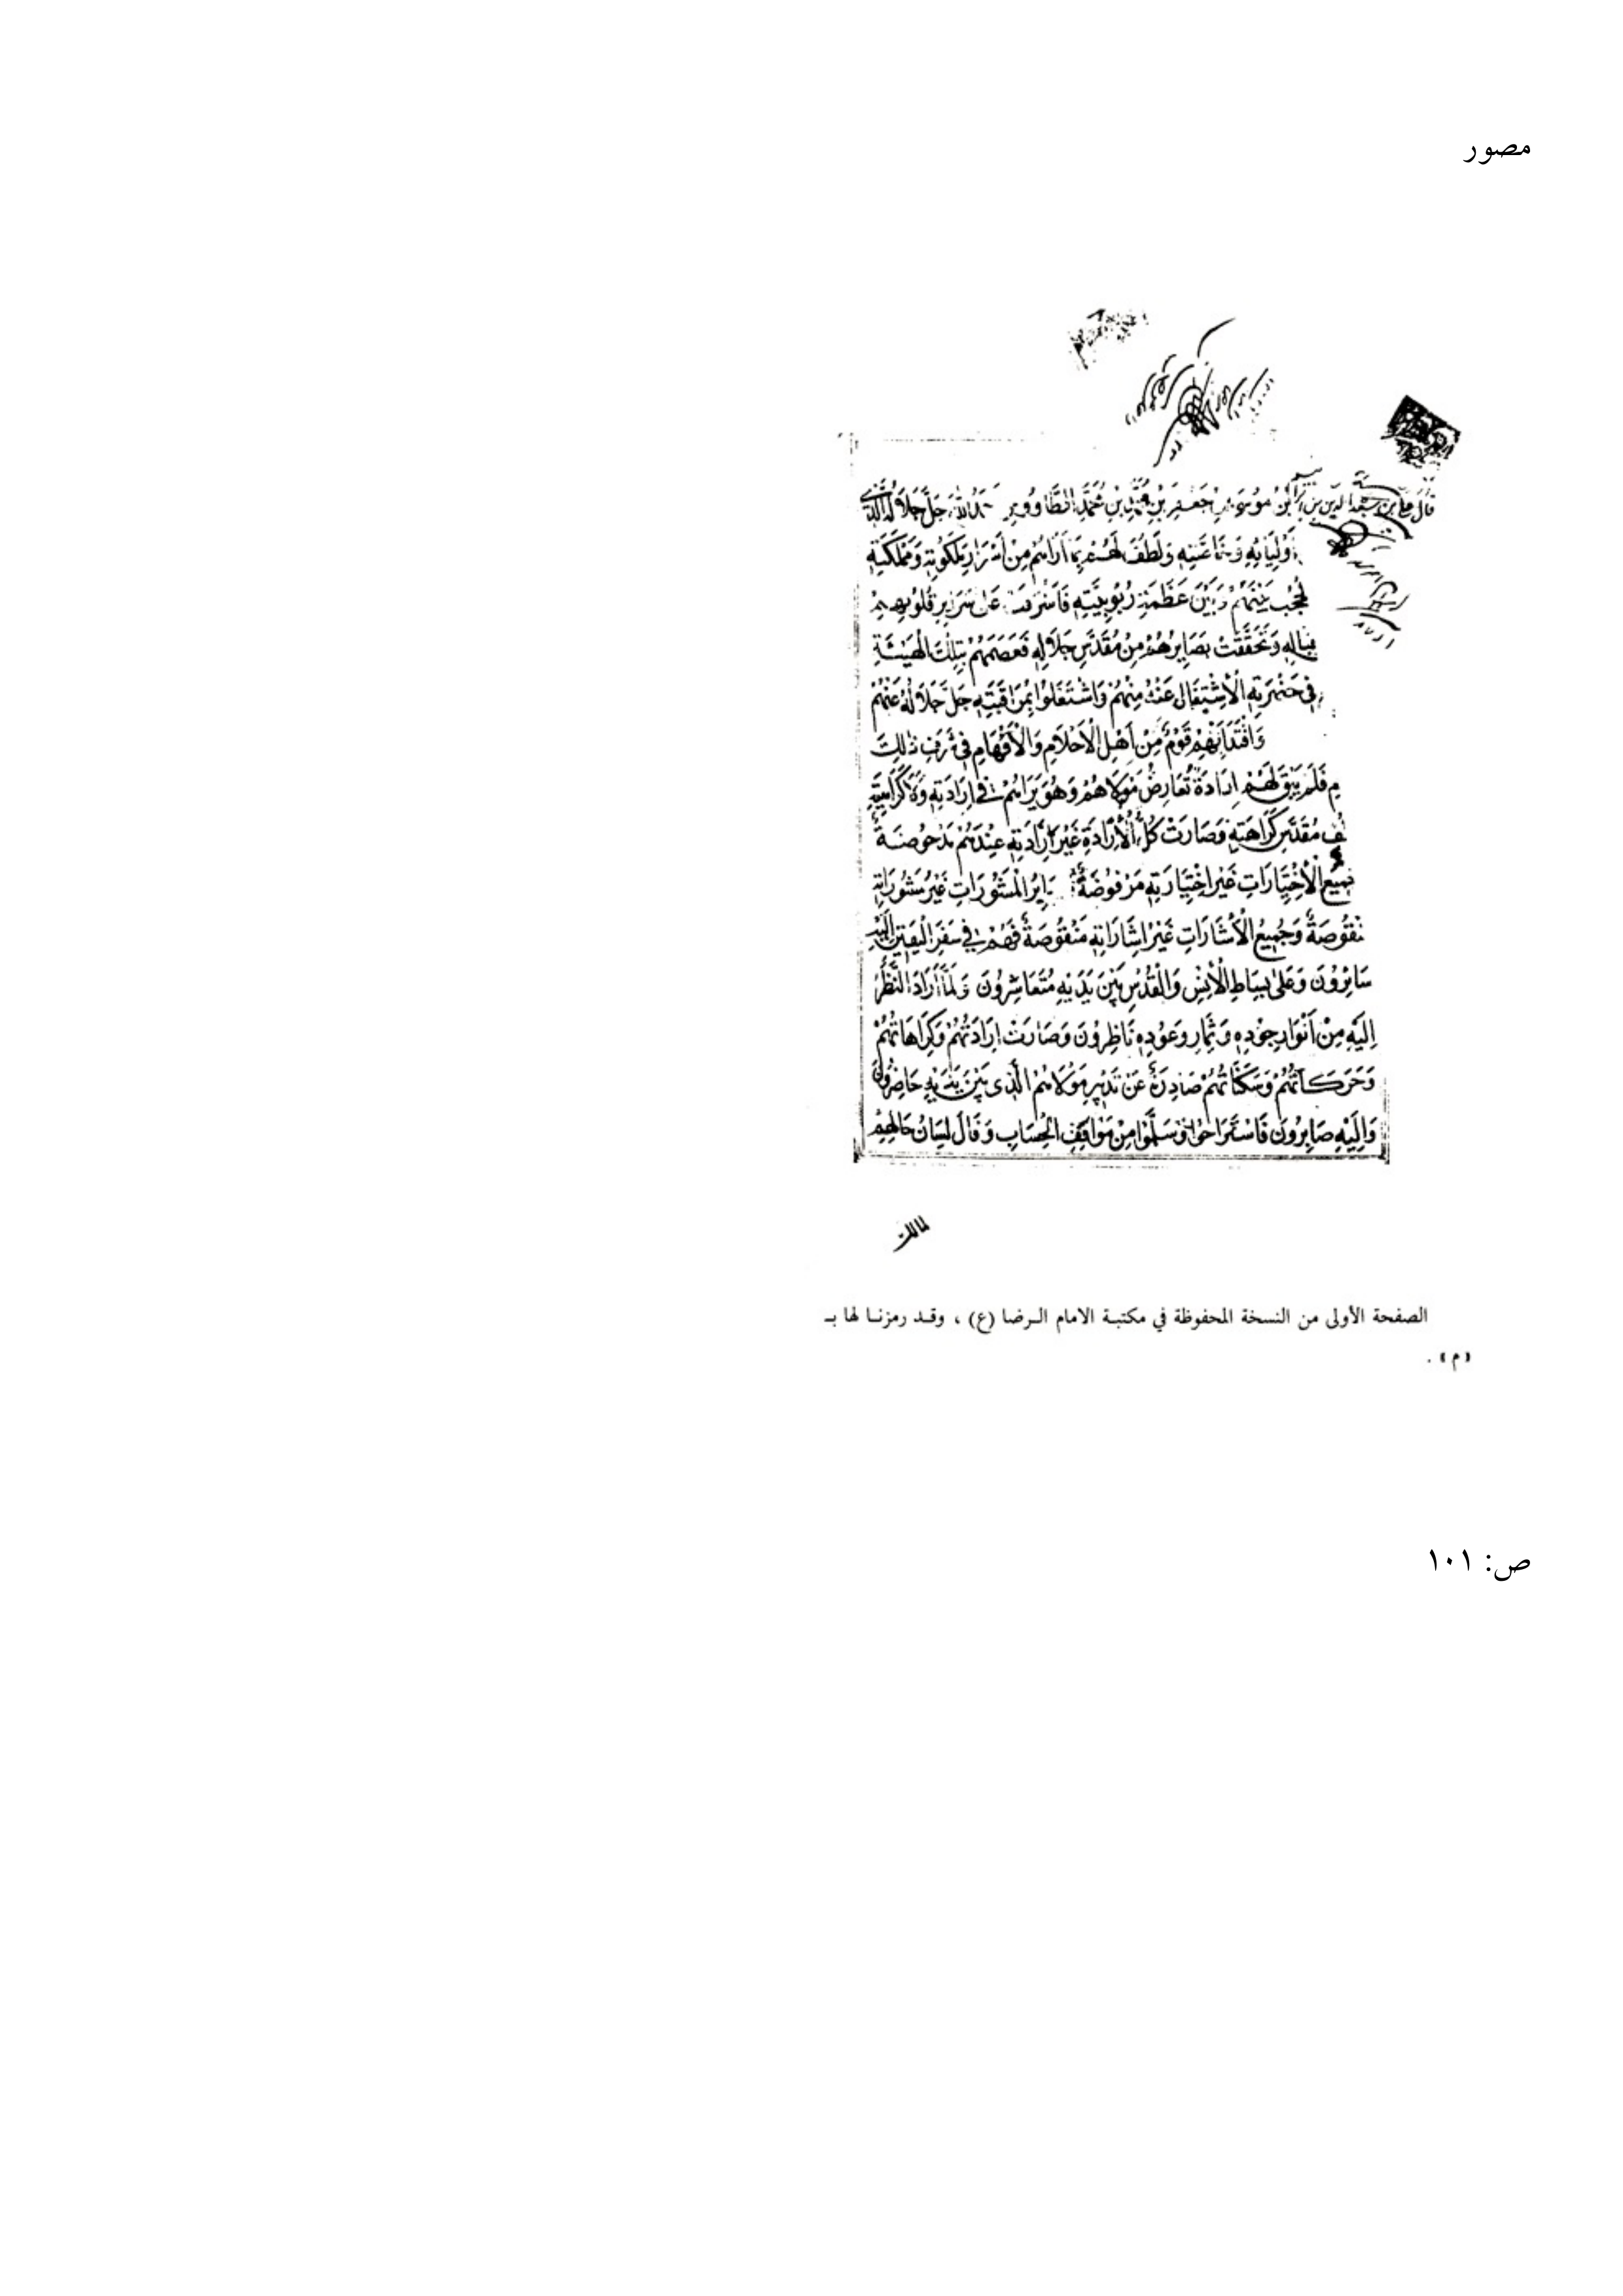 مصور
قال علي بن موسى بن جعفر بن محمد بن محمد الطاووس جل جلاله الذي
أَوْلِيَائِهِ وَخَاصَّتِهِ وَلَطَفَ لَهُمْ بِمَا أَرَاهُمْ مِنْ أَسْرَارِ مَلَكُوتِهِ وَمَمْلَكَتِهِ
لحُجُب بَيْنَهُمْ وَبَيْنَ عَظَمَةِ رُبُوبِيَّتِهِ فَأَشْرَقَتْ عَلى سَرَايِرِ قُلُوبِهِمْ
وَتَحَقَّقَتْ بَصَايِرُهُمْ مِنْ مُقَدَّسِ جَلَالِهِ فَعَصَمَهُمْ بِتِلْكَ الْهَيْبَةِ
فِي حَضْرَتِهِ الْاشْتِغَالِ عَنْهُ مِنْهُمْ وَاشْتَغَلُوا بِمُرَاقَبَتِهِ جَلَّ جَلَالُهُ عَنْهُمْ
وَاقْتَدَا بِهِمْ قَوْمٌ مِنْ أَهْلِ الْأَحْلَامِ وَالْأَفْهَامِ فِي شَرَفِ ذٰلِكَ
م فَلَمْ يَبْقَ لَهُمْ إِرَادَةٌ تُعَارِضُ مَوْلَاهُمْ وَهُوَ يَرَاهُمْ فِي إِرَادَتِهِ وَلَا كَرَاهِيَّةٌ
مُقَدَّسِ كَرَاهَتِهِ وَصَارَتْ كُلُّ الْأَرَادَةِ غَيْرَ إِرَادَتِهِ عِنْدَهُمْ مَدْحُوضَةً
جَمِيعُ الْأَخْتِيَارَاتِ غَيْرَ اخْتِيَارَتِهِ مَرْفُوضَةً سَايِرُ الْمَشُورَاتِ غَيْرَ مَشُورَاتِهِ
نْقُوضَةً وَجَمِيعُ الْأَشَارَاتِ غَيْرَ إِشَارَاتِهِ مَنْقُوصَةً فَهُمْ فِي سَفَرِ الْيَقِينِ إِلَيْهِ
سَائِرُونَ وَعَلَى بِسَاطِ الْأُنْسِ وَالْقُدْسِ بَيْنَ يَدَيْهِ مُتَعَاشِرُونَ وَلَمَّا أَرَادَ النَّظَرَ
إِلَيْهِ مِنْ أَنْوَارِ جُودِهِ وَثِمَارِ وَعُودِهِ نَاظِرُونَ وَصَارَتْ إِرَادَتُهُمْ وَكِرَاهَاتُهُمْ
وَحَرَكَاتُهُمْ وَسَكَنَاتُهُمْ صَادِرَةً عَنْ تَدْبِيرِ مَوْلَاهُمْ الَّذِي بَيْنَ يَدَيْهِ حَاضِرُونَ
وَإِلَيْهِ صَايِرُونَ فَاسْتَرَاحُوا وَسَلَّمُوا مِنْ مَوَاقِفِ الْحِسَابِ وَقَالَ لِسَانُ حَالِهِمْ
لمالك
الصفحة الأولى من النسخة المحفوظة في مكتبة الامام الرضا (ع) ، وقد رمزنا لها بـ
«م» .
ص: ١٠١